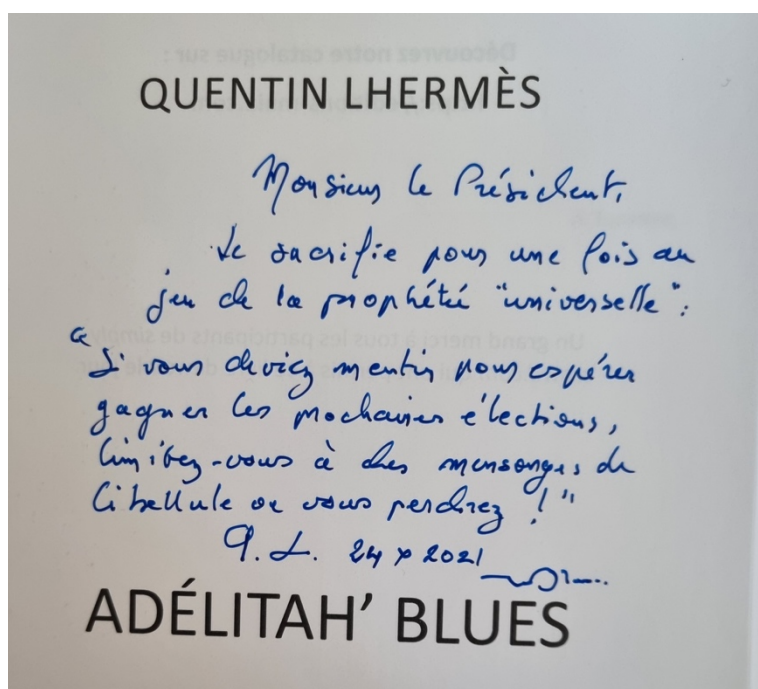 QUENTIN LHERMÈS
Monsieur le Président,
Je sacrifie pour une fois au
jeu de la prophétie "universelle" :
"Si vous deviez mentir pour espérer
gagner les prochaines élections,
limitez-vous à des mensonges de
libellule ou vous perdrez !"
Q. L. 24 X 2021
ADÉLITAH' BLUES